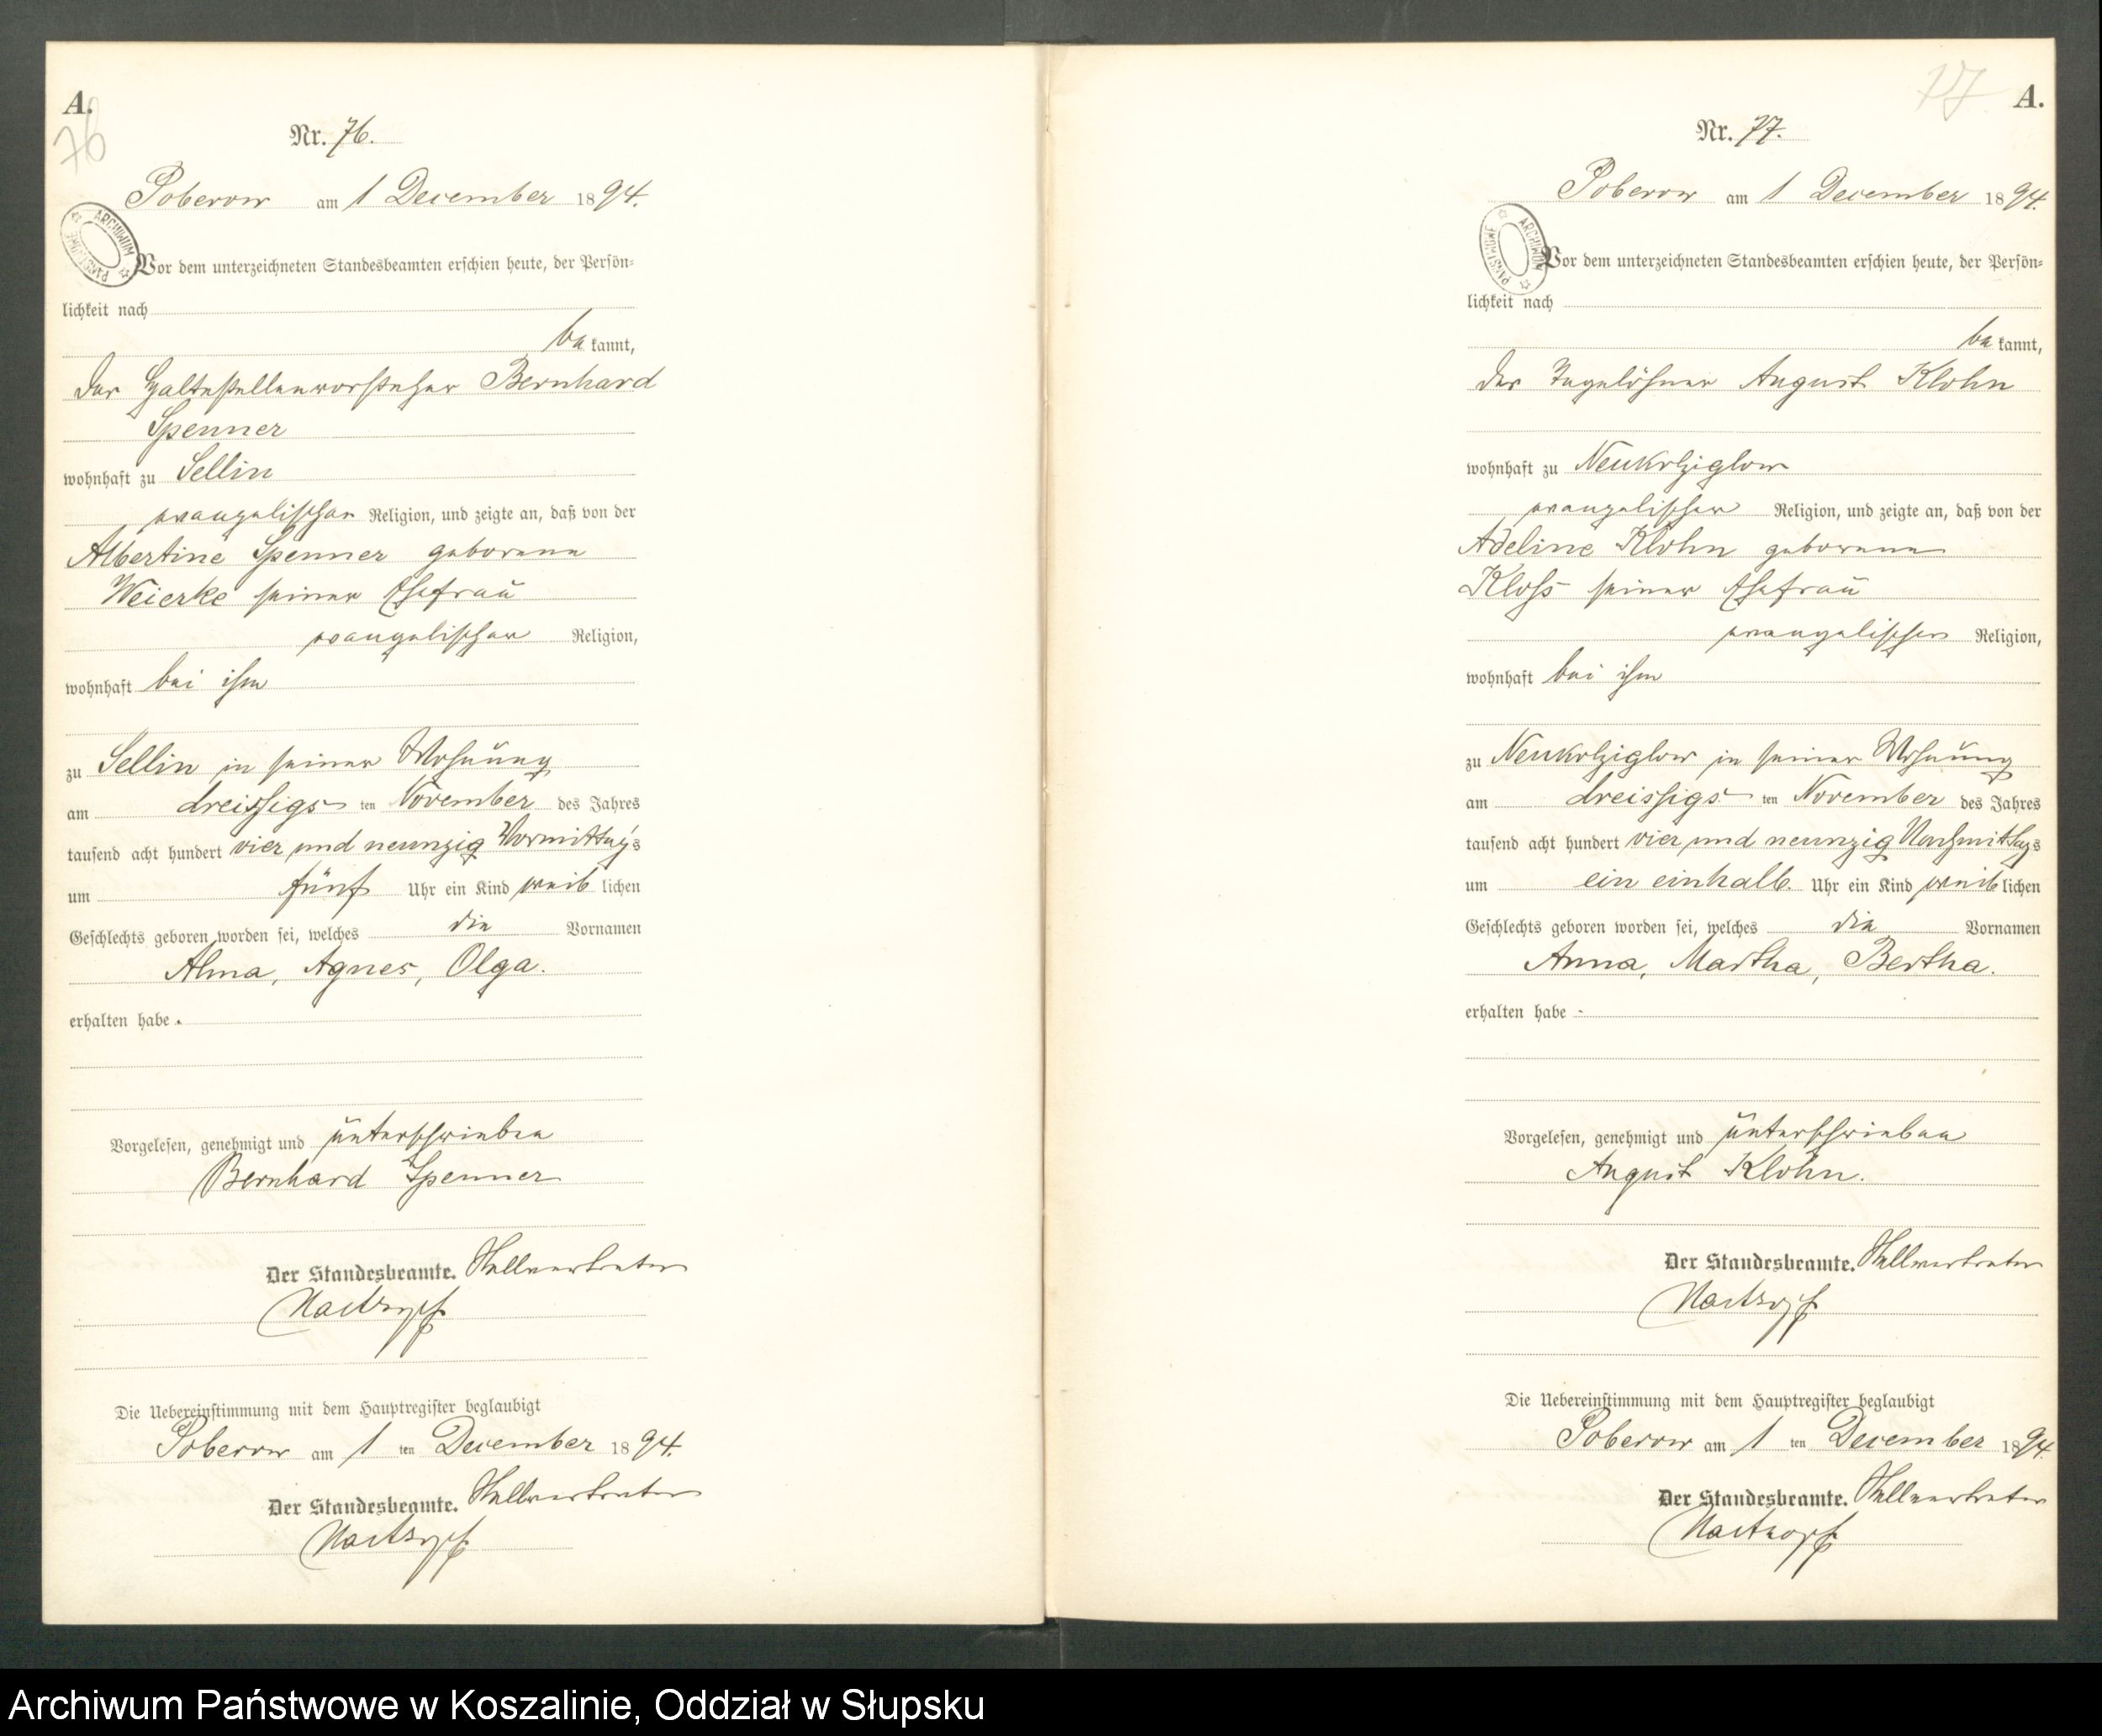 A.
76
Nr. 76.
Poberow am 1 December 1894.
ARCHIWUM PAŃSTWOWE
Vor dem unterzeichneten Standesbeamten erschien heute, der Persön-
lichkeit nach
be kannt,
der Haltestellenvorsteher Bernhard
Spenner
wohnhaft zu Sellin
evangelischer Religion, und zeigte an, daß von der
Albertine Spenner geborene
Weierke seiner Ehefrau
evangelischer Religion,
wohnhaft bei ihm
zu Sellin in seiner Wohnung
am dreissigs ten November des Jahres
tausend acht hundert vier und neunzig Vormittags
um fünf Uhr ein Kind weib lichen
Geschlechts geboren worden sei, welches die Vornamen
Alma, Agnes, Olga.
erhalten habe.
Vorgelesen, genehmigt und unterschrieben
Bernhard Spenner
Der Standesbeamte. Stellvertreter
Die Uebereinstimmung mit dem Hauptregister beglaubigt
Poberow am 1 ten December 1894.
Der Standesbeamte. Stellvertreter
77
A.
Nr. 77.
Poberow am 1 December 1894.
ARCHIWUM PAŃSTWOWE
Vor dem unterzeichneten Standesbeamten erschien heute, der Persön-
lichkeit nach
be kannt,
der Tagelöhner August Klohn
wohnhaft zu Neukolziglow
evangelischer Religion, und zeigte an, daß von der
Adeline Klohn geborene
Kloss seiner Ehefrau
evangelischer Religion,
wohnhaft bei ihm
zu Neukolziglow in seiner Wohnung
am dreissigs ten November des Jahres
tausend acht hundert vier und neunzig Nachmittags
um ein einhalb Uhr ein Kind weib lichen
Geschlechts geboren worden sei, welches die Vornamen
Anna, Martha, Bertha.
erhalten habe -
Vorgelesen, genehmigt und unterschrieben
August Klohn.
Der Standesbeamte. Stellvertreter
Die Uebereinstimmung mit dem Hauptregister beglaubigt
Poberow am 1 ten December 1894.
Der Standesbeamte. Stellvertreter
Archiwum Państwowe w Koszalinie, Oddział w Słupsku